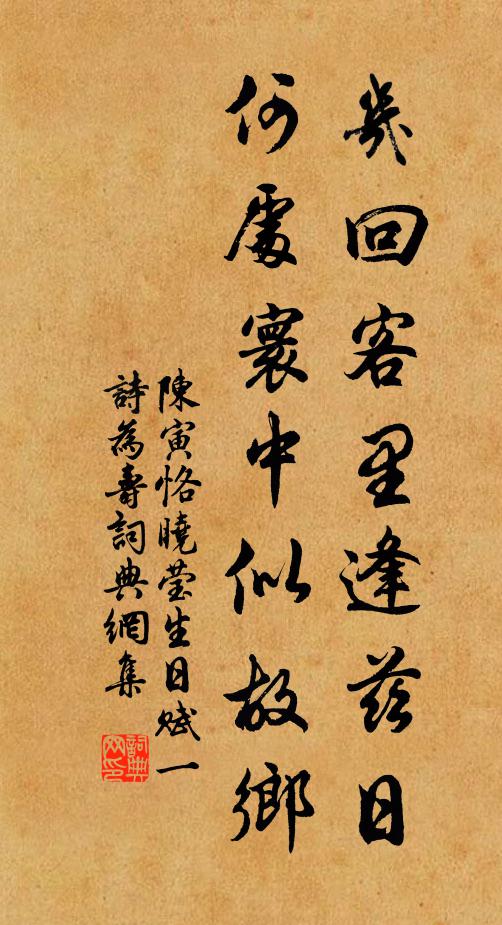 幾回客里逢茲日
何處寰中似故鄉
陳寅恪曉瑩生日賦一
詩為壽詞典網集
詞典
网印